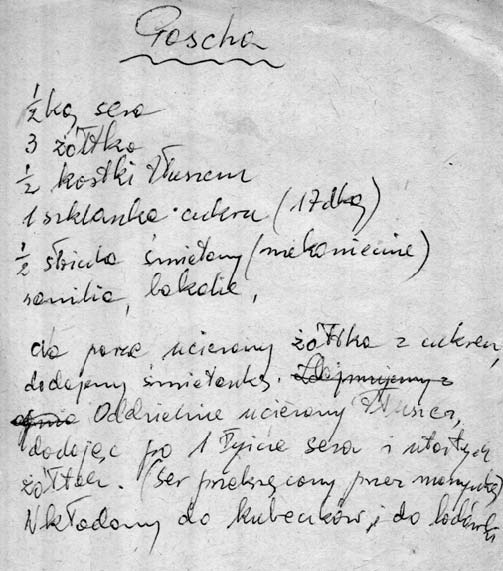 Pascha
½ kg sera
3 żółtka
½ kostki tłuszczu
1 szklanka cukru (17 dkg)
½ słoika śmietany (niekoniecznie)
wanilia, bakalie,
do parze ucieramy żółtka z cukrem,
dodajemy śmietankę. Zdejmujemy z
ognia Oddzielnie ucieramy tłuszcz,
dodając po 1 łyżce sera i utartych
żółtek. (Ser przekręcony przez maszynkę)
Wkładamy do kubeczków, i do lodówki